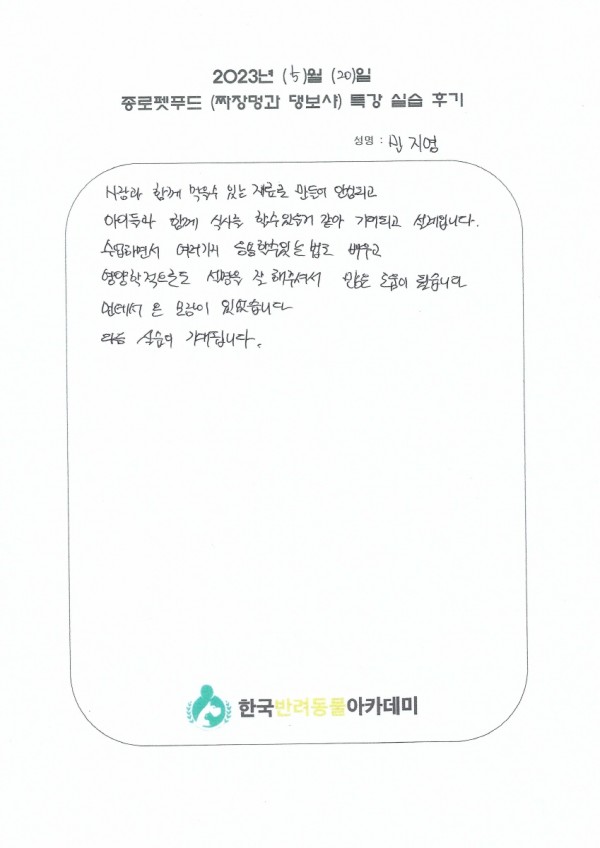 2023년 (5)월 (20)일
종로펫푸드 (짜장멍과 댕보샤) 특강 실습 후기
성명 : 민지영
사람과 함께 먹을수 있는 재료로 만들어 안심되고
아이들과 함께 식사를 할수있을거 같아 기대되고 설레입니다.
수업하면서 여러가지 응용할수있는 법도 배우고
영양학적으로도 설명을 잘 해주셔서 많은 도움이 됐습니다
멀에서 온 보람이 있었습니다
다음 실습이 기대됩니다.
한국반려동물아카데미